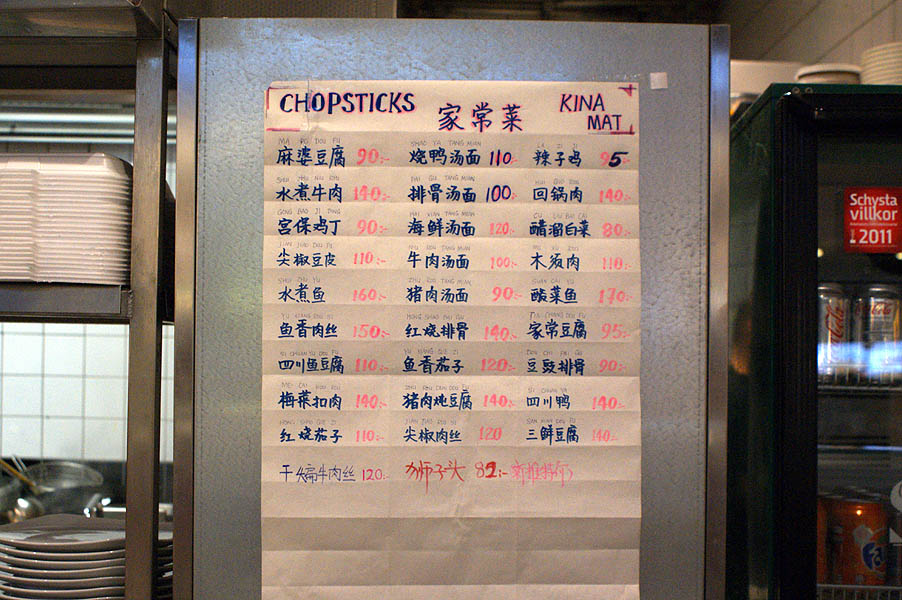 CHOPSTICKS 家常菜 KINA MAT
MA PO DOU FU SHAO YA TANG MIAN LA ZI JI
麻婆豆腐 90:- 烧鸭汤面 110:- 辣子鸡 95
SHUI ZHU NIU ROU PAI GU TANG MIAN HUI GUO ROU
水煮牛肉 140:- 排骨汤面 100:- 回锅肉 140:-
GONG BAO JI DING HAI XIAN TANG MIAN CU LIU BAI CAI
宫保鸡丁 90:- 海鲜汤面 120:- 醋溜白菜 80:-
JIAN JIAO DOU PI NIU ROU TANG MIAN MU XU ROU
尖椒豆皮 110:- 牛肉汤面 100:- 木须肉 110:-
SHUI ZHU YU ZHU ROU TANG MIAN SUAN CAI YU
水煮鱼 160:- 猪肉汤面 90:- 酸菜鱼 170:-
YU XIANG ROU SI HONG SHAO PAI GU JIA CHANG DOU FU
鱼香肉丝 150:- 红烧排骨 140:- 家常豆腐 95:-
SI CHUAN YU DOU FU YU XIANG QIE ZI DOU CHI PAI GU
四川鱼豆腐 110:- 鱼香茄子 120:- 豆豉排骨 90:-
MEI CAI KOU ROU ZHU ROU DUN DOU FU SI CHUAN YA
梅菜扣肉 140:- 猪肉炖豆腐 140:- 四川鸭 140:-
HONG SHAO QIE ZI JIAN JIAO ROU SI SAN XIAN DOU FU
红烧茄子 110:- 尖椒肉丝 120 三鲜豆腐 140:-
干煸牛肉丝 120:- 狮子头 82:-
Schysta
villkor
2011
Coca-Cola